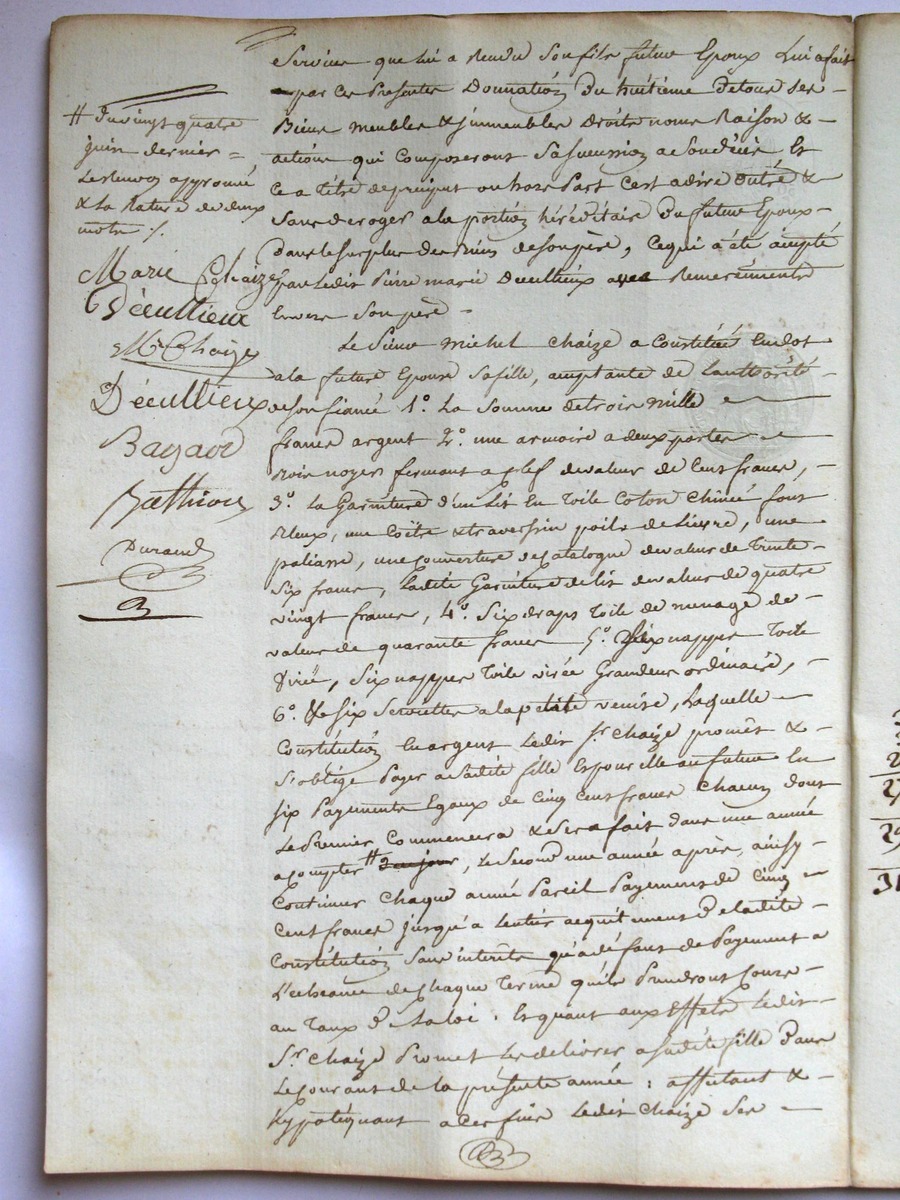 services que lui a rendu son fils futur Epoux lui a fait
par ces présentes Donnation Du huitieme de tous ses
Biens meubles & immeubles Droits noms Raison &
actions qui composeront sa succession a son Décès Et
ce a titre de preciput ou hors Part c'est adire outre &
sans deroger a la portion héréditaire Du futur Epoux
dans le surplus des biens de son père, ce qui a été accepté
par ledit Pierre marie Decultieux avec Remerciments
Envers son père
Le Sieur michel Chaize a Constitué En dot
a la future Epouse sa fille, acceptante de l'authorité
de son fiancé 1.º La Somme de trois mille
francs argent 2.º une armoire a deux portes
Bois noyer fermant a clef de valeur de Cent francs,
3.º La Garniture d'un Lit En Toile Coton Chinée fond
Bleux, une Coëtre & traversin poile de Lievre, une
paliasse, une couverture de Catalogne de valeur de Trente
Six francs, Ladite Garniture de lit de valeur de quatre
vingt francs, 4.º Six draps Toile de menage de
valeur de quarante francs 5.º Six nappes Toile
virée, Six nappes Toile virée Grandeur ordinaire,
6.º & six Serviettes a la petite venise, Laquelle
Constitution En argent Ledit S.r Chaize promet &
s'oblige Payer a ladite fille Et pour elle au futur En
six Payements Egaux de Cinq Cent francs Chacun dont
Le Premier Commencera & sera fait dans une année
a compter # de ce jour, Le Second une année après, ainsy
Continuer Chaque année Pareil Payement de Cinq
Cent francs jusqu'a Lentier acquittement de ladite
Constitution Sans intérêts qu'a défaut de Payement a
L'echeance de Chaque Terme qu'ils Prendront Cours
au Taux de La loi. Et quant aux Effets Ledit
S.r Chaize Promet Les délivrer a sadite fille Dans
Le Courant de la présente année : affectant &
hypotéquant a ces fins Ledit Chaize Ses
# Du vingt quatre
juin dernier =
Le Renvoy approuvé
& La Rature de deux
mots ./.
Marie Chaize
Décultieux
M Chaize
Décultieux
Bayard
Mathiou
Durand